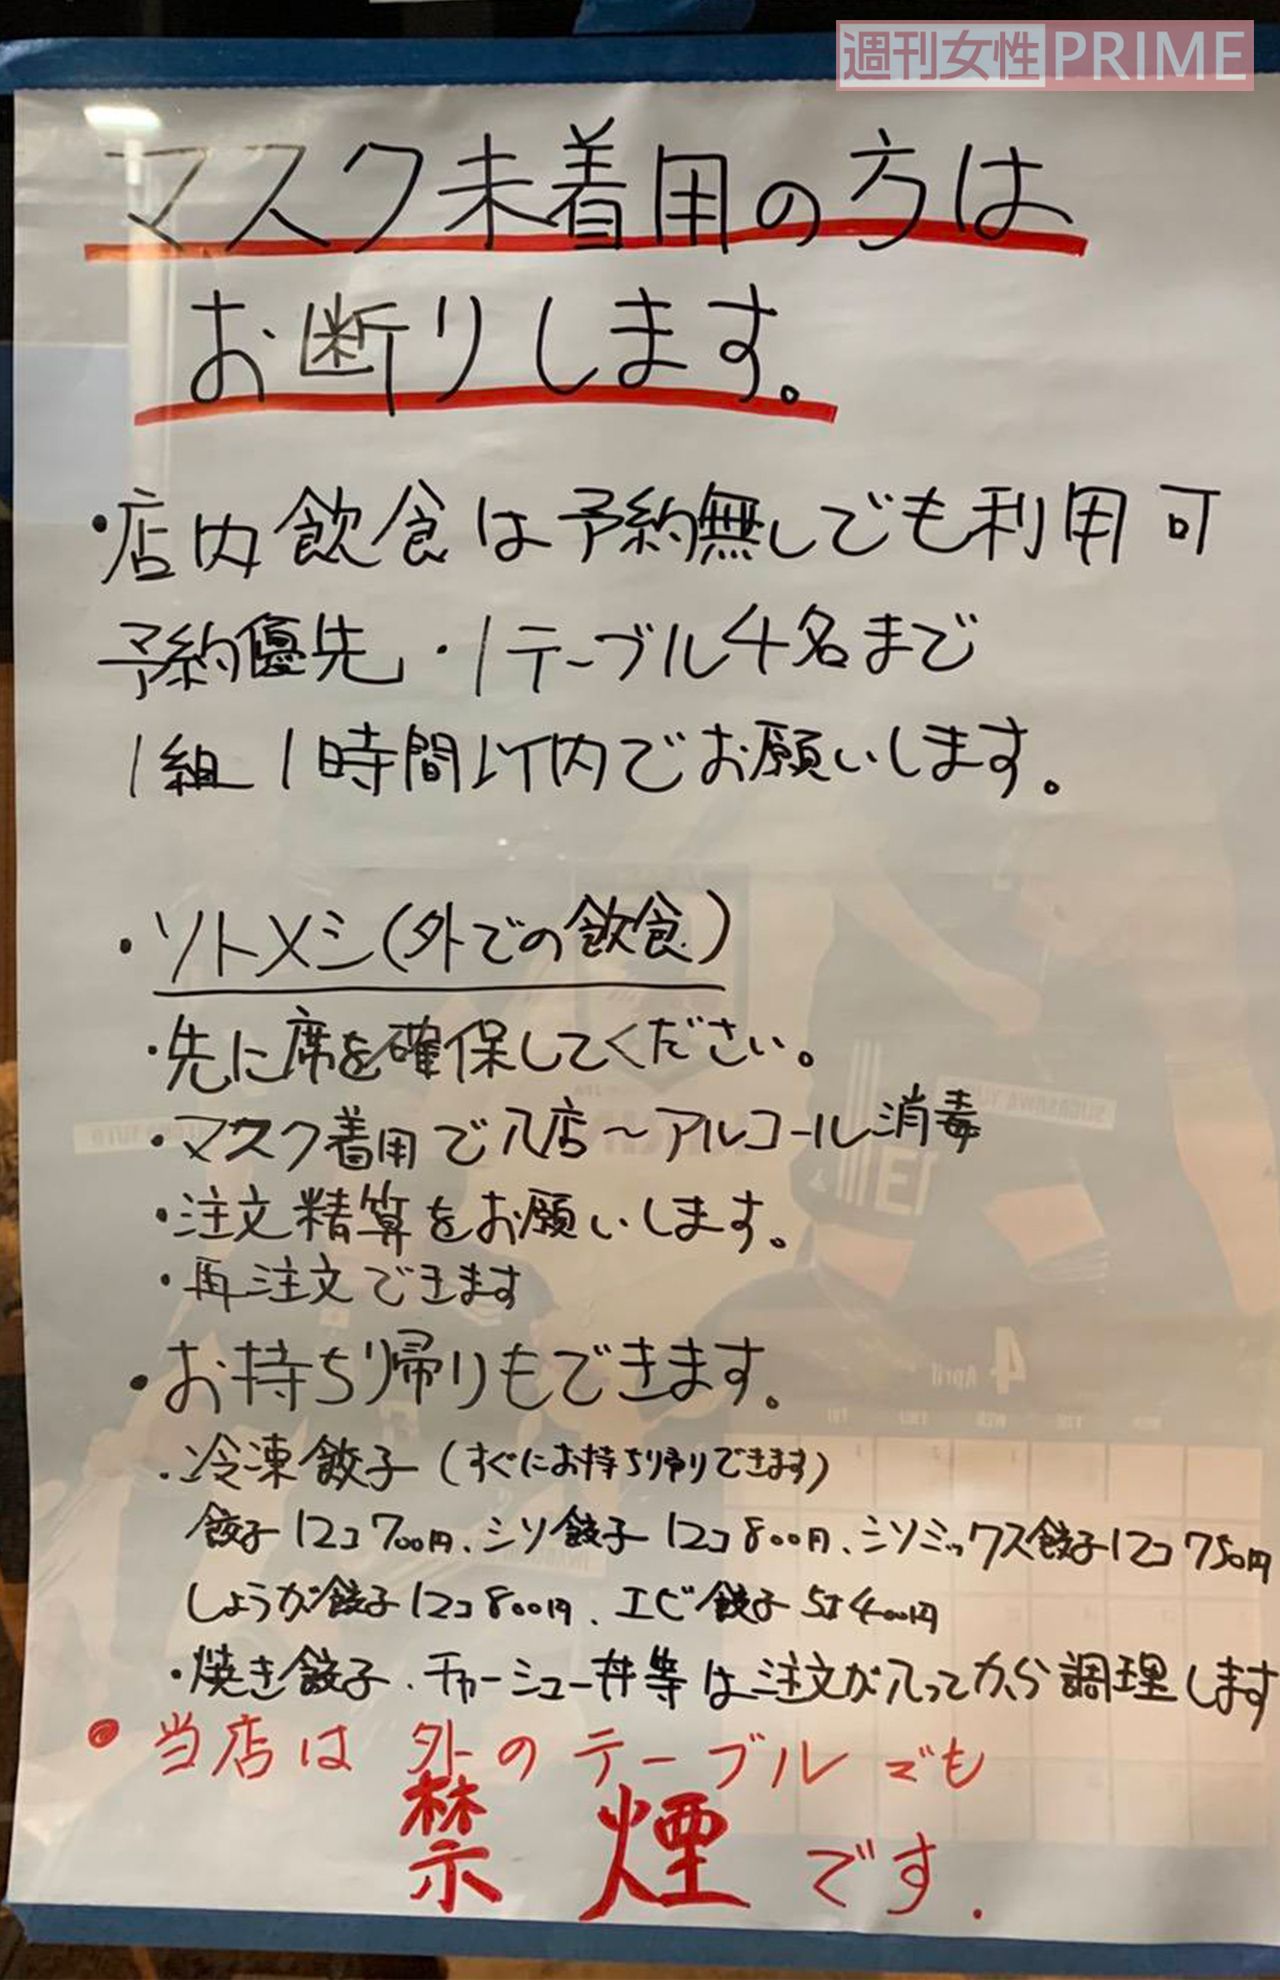 週刊女性PRIME
マスク未着用の方は
お断りします。
・店内飲食は予約無しでも利用可
予約優先・1テーブル4名まで
1組1時間以内でお願いします。
・ソトメシ(外での飲食)
・先に席を確保してください。
・マスク着用で入店〜アルコール消毒
・注文精算をお願いします。
・再注文できます
・お持ち帰りもできます。
・冷凍餃子(すぐにお持ち帰りできます)
餃子12コ700円、シソ餃子12コ800円、シソミックス餃子12コ750円
しょうが餃子12コ800円、エビ餃子5ヶ400円
・焼き餃子、チャーシュー丼等は注文が入ってから調理します
・当店は外のテーブルでも
禁煙です.
SUGASAWA YU
13
4 April